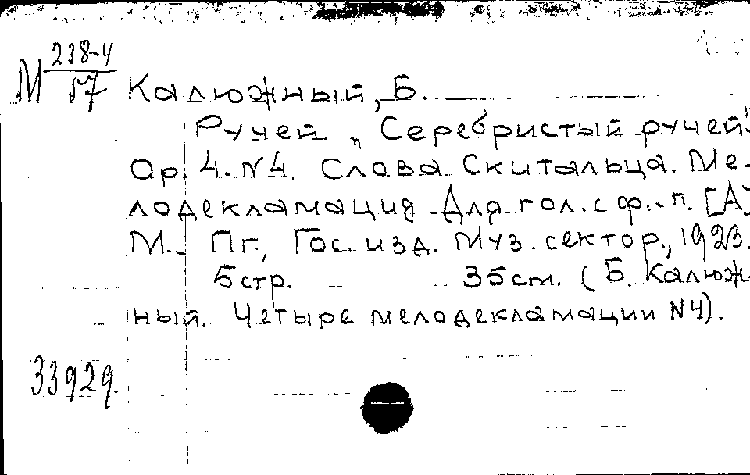 М 238-4
57 Калюжный, Б.
Ручей „Серебристый ручей"
Ор. 4. №4. Слова Скитальца. Ме-
лодекламация для гол. с ф.-п. [А]
М. Пг., Гос. изд. Муз. сектор, 1923.
5 стр. 35 см. (Б. Калюж-
ный. Четыре мелодекламации №4).
33929.